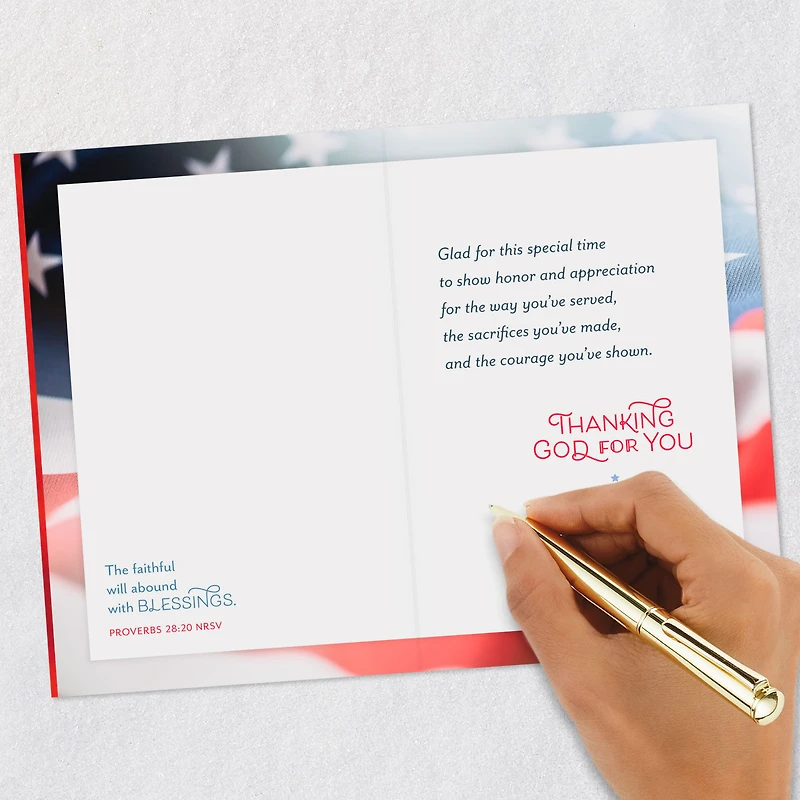 The faithful
will abound
with BLESSINGS.
PROVERBS 28:20 NRSV
Glad for this special time
to show honor and appreciation
for the way you've served,
the sacrifices you've made,
and the courage you've shown.
THANKING
GOD FOR YOU